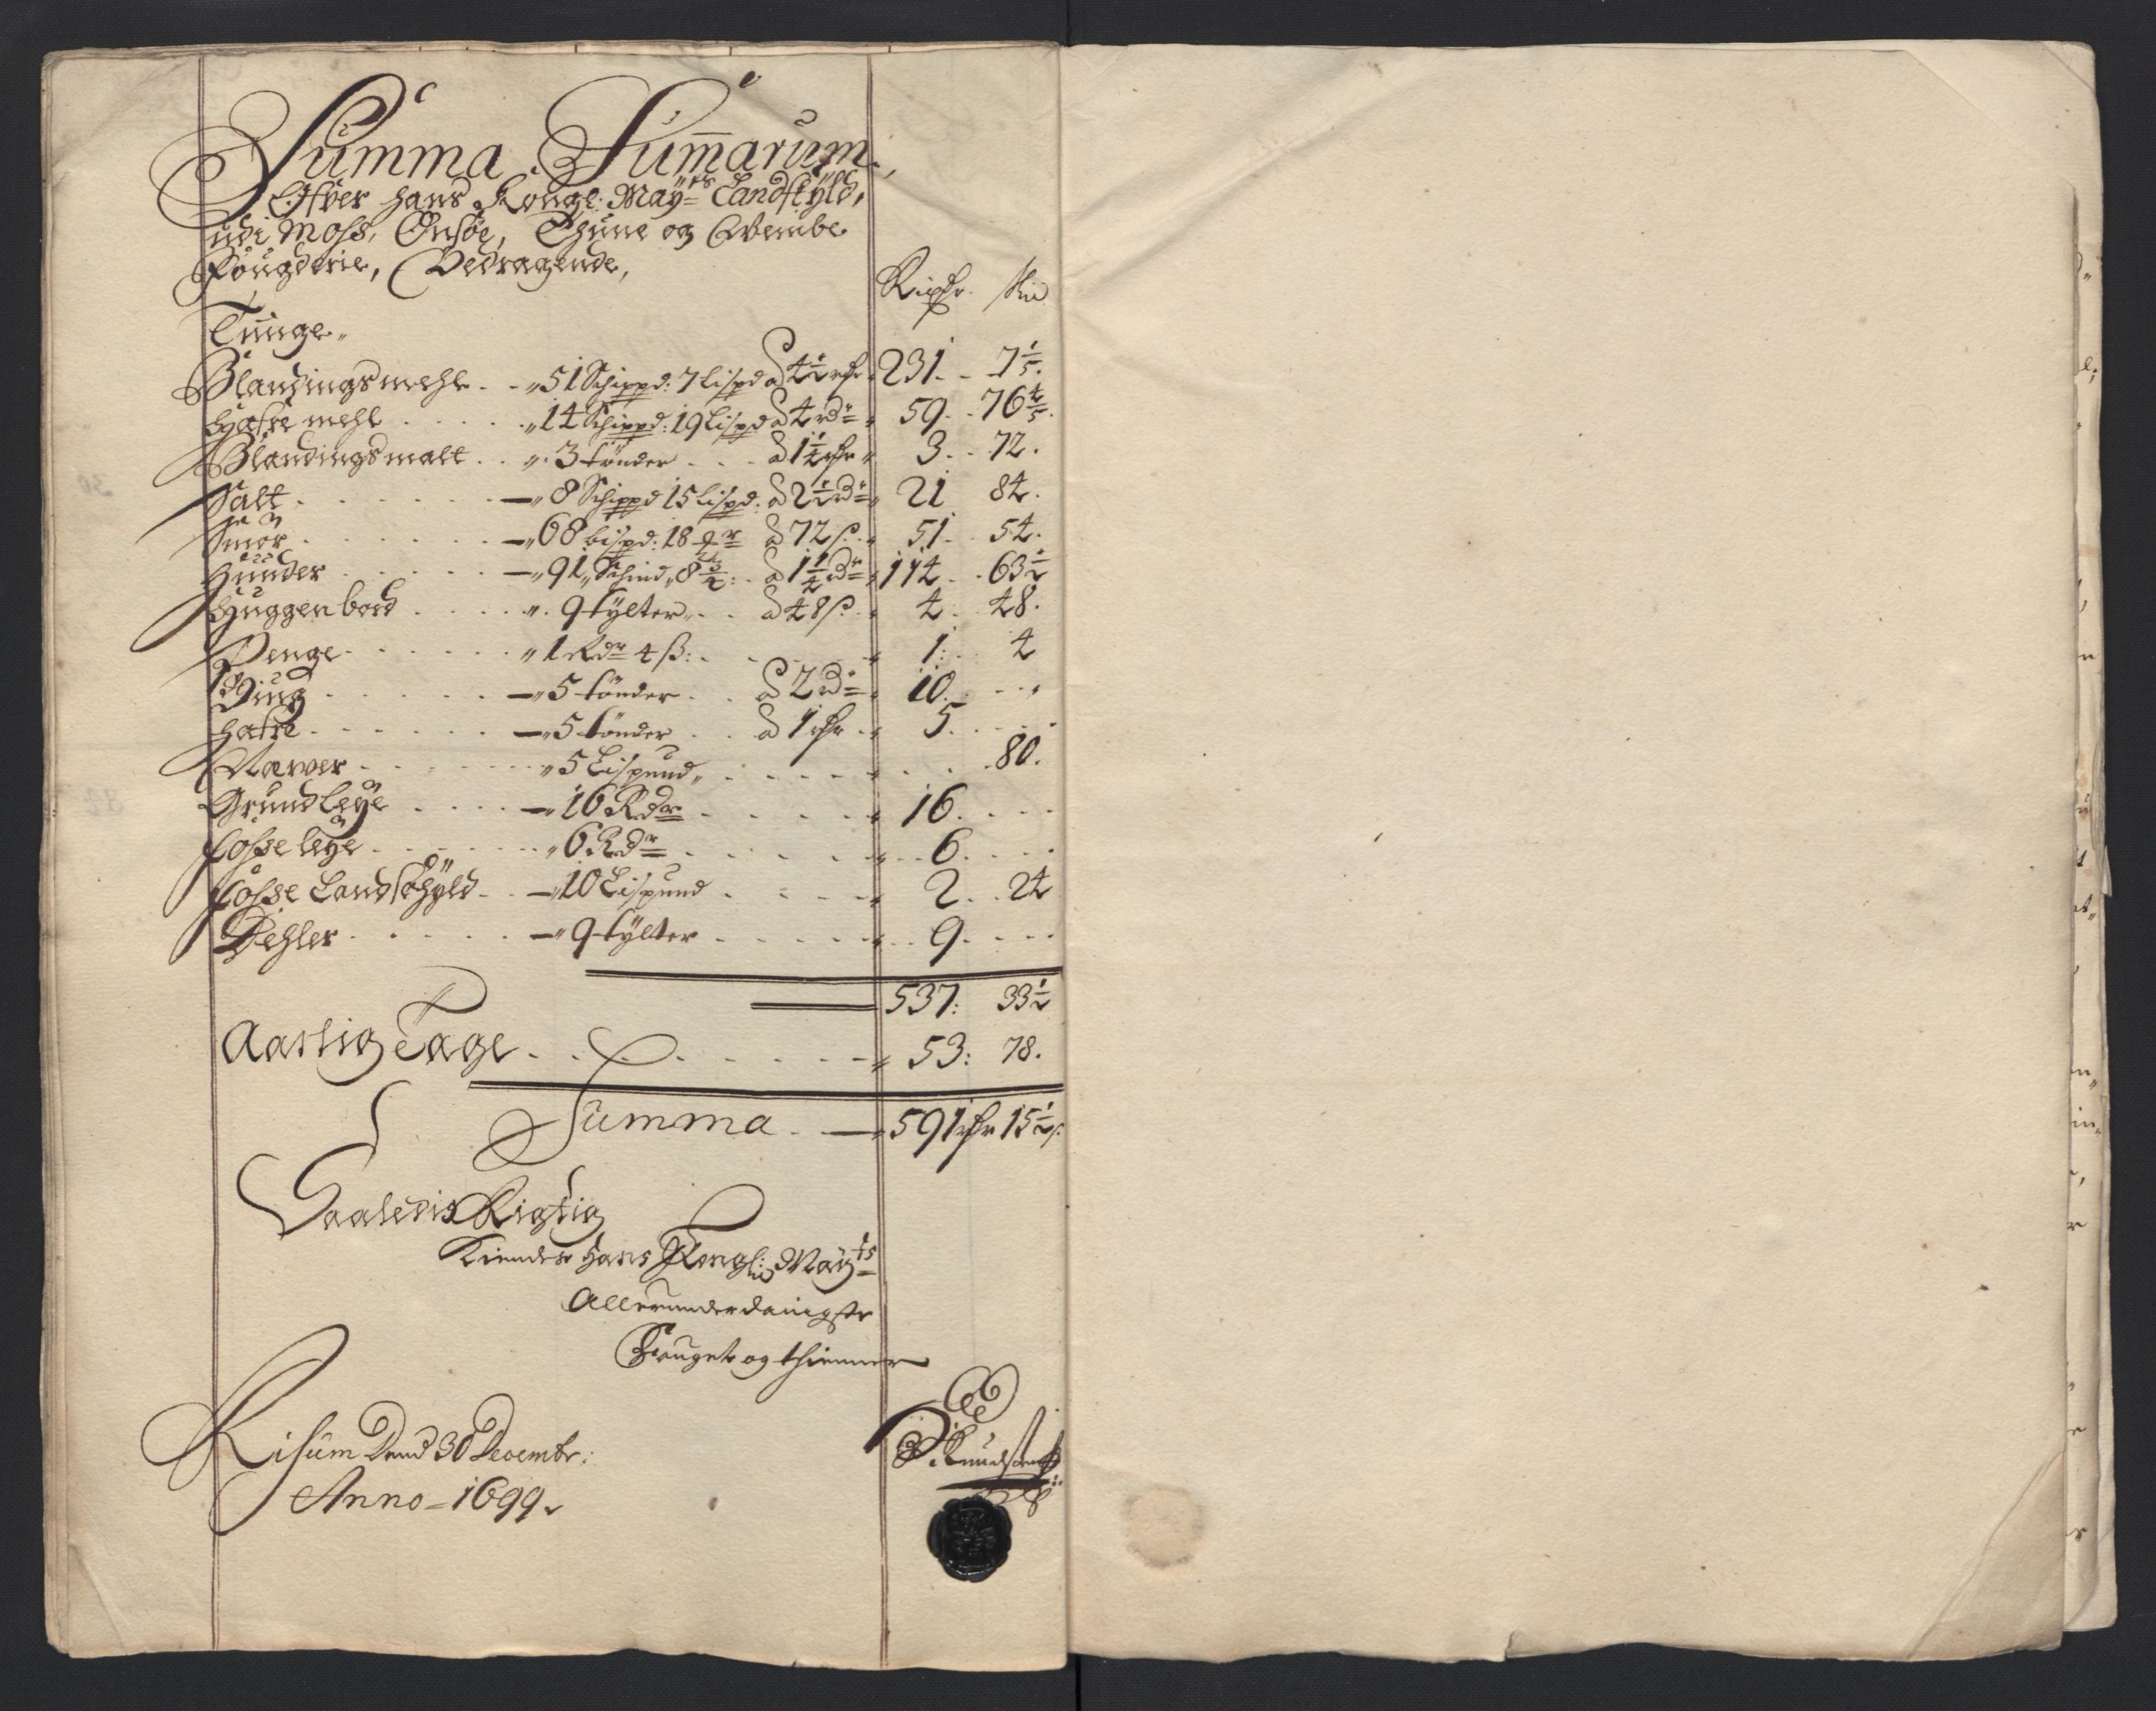 Summa Summarum
Ofver hans Kongl: Maÿts Landskÿld,
udi Moss, Onsöe, Thune og Weinbe
Fougderie, Bedragende,
Rixdr. Skl
Tunge
Blandingsmehl - - 51 Schippd: 7 Lispd à 4½ rdr 231 - 7⅕.
Hafre mehl . . . . 14 Schippd: 19 Lispd à 4 rdr 59 - 76⅘.
Blandingsmalt . . 3 tönder . . à 1¼ rdr 3 - 72.
Salt . . . . — 8 Schippd 15 Lispd: à 2½ rdr 21 84.
Smör . . . . — 68 bispd: 18 mr à 72 s. 51 54.
Huuder . . . . — 91 Schind 8¾: à 1¼ rdr 114 . 63½
Huggenbord . . . . 9 tÿlter . . à 48 s. 4 48.
Penge . . . . 1 Rdr 4 ß: . . 1: 4
Biug . . . . — 5 tönder . . à 2 rdr 10. - -
Hafre . . . . — 5 tönder . . à 1 rdr 5. . .
Næwer . . . . 5 Lispund . . . . 80.
Grundleÿe . . . — 16 Rdr . . . . 16. . .
Fosseleÿe . . . . 6 Rdr . . . . 6. . .
Fosse Landschÿld . . — 10 Lispund . . . 2 . 24
Dehler . . . . — 9 tÿlter . . . . 9. . .
537: 33½
Aarlig Tage . . . . . 53: 78.
Summa . — 591 rdr 15½ s.
Saaledis Rigtig
Kiender Hans Kongl: Maÿts
Allerunderdanigste
Fouget og thienner
Risum Dend 30 Decembr:
Anno = 1699.